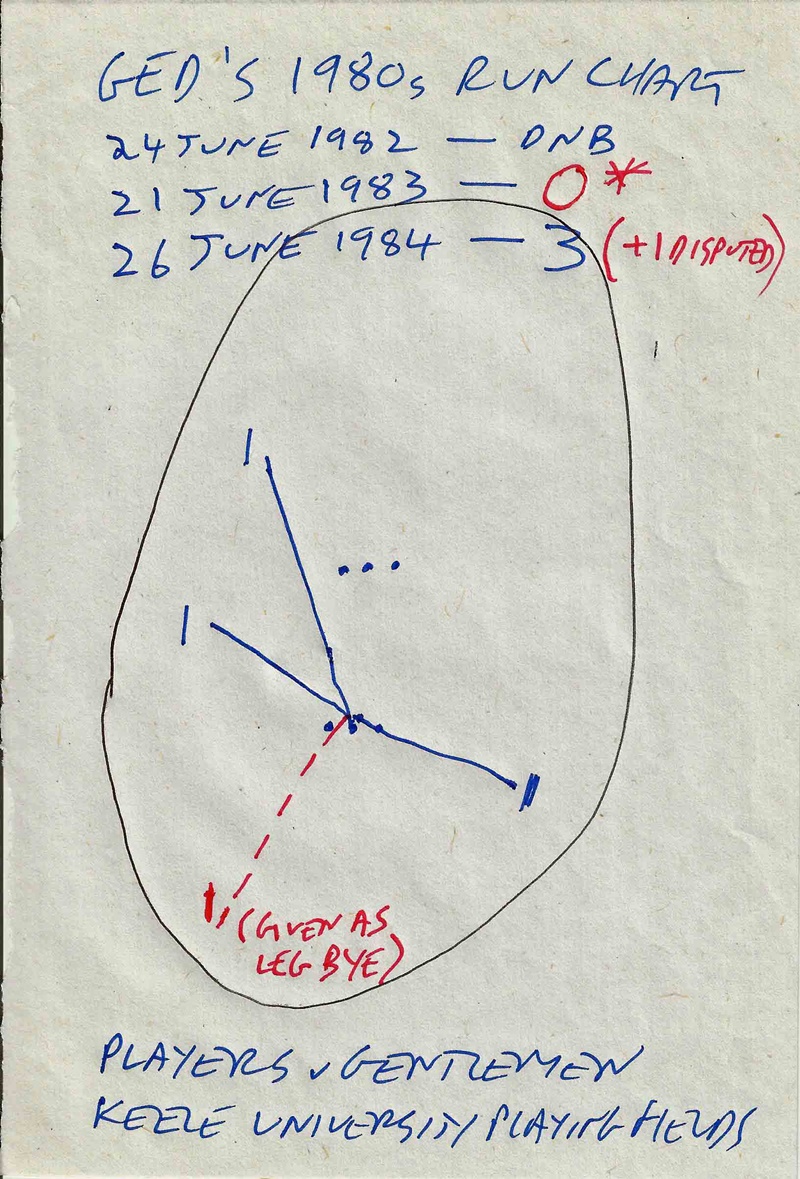 GED'S 1980s RUN CHART
24 JUNE 1982 — DNB
21 JUNE 1983 — 0*
26 JUNE 1984 — 3 (+1 DISPUTED)
1
1
11
1, (GIVEN AS
LEG BYE)
PLAYERS v GENTLEMEN
KEELE UNIVERSITY PLAYING FIELDS